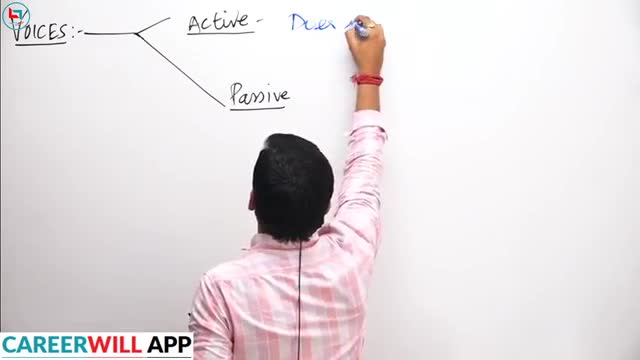 VOICES:- Active - Doer
Passive
CAREERWILL APP